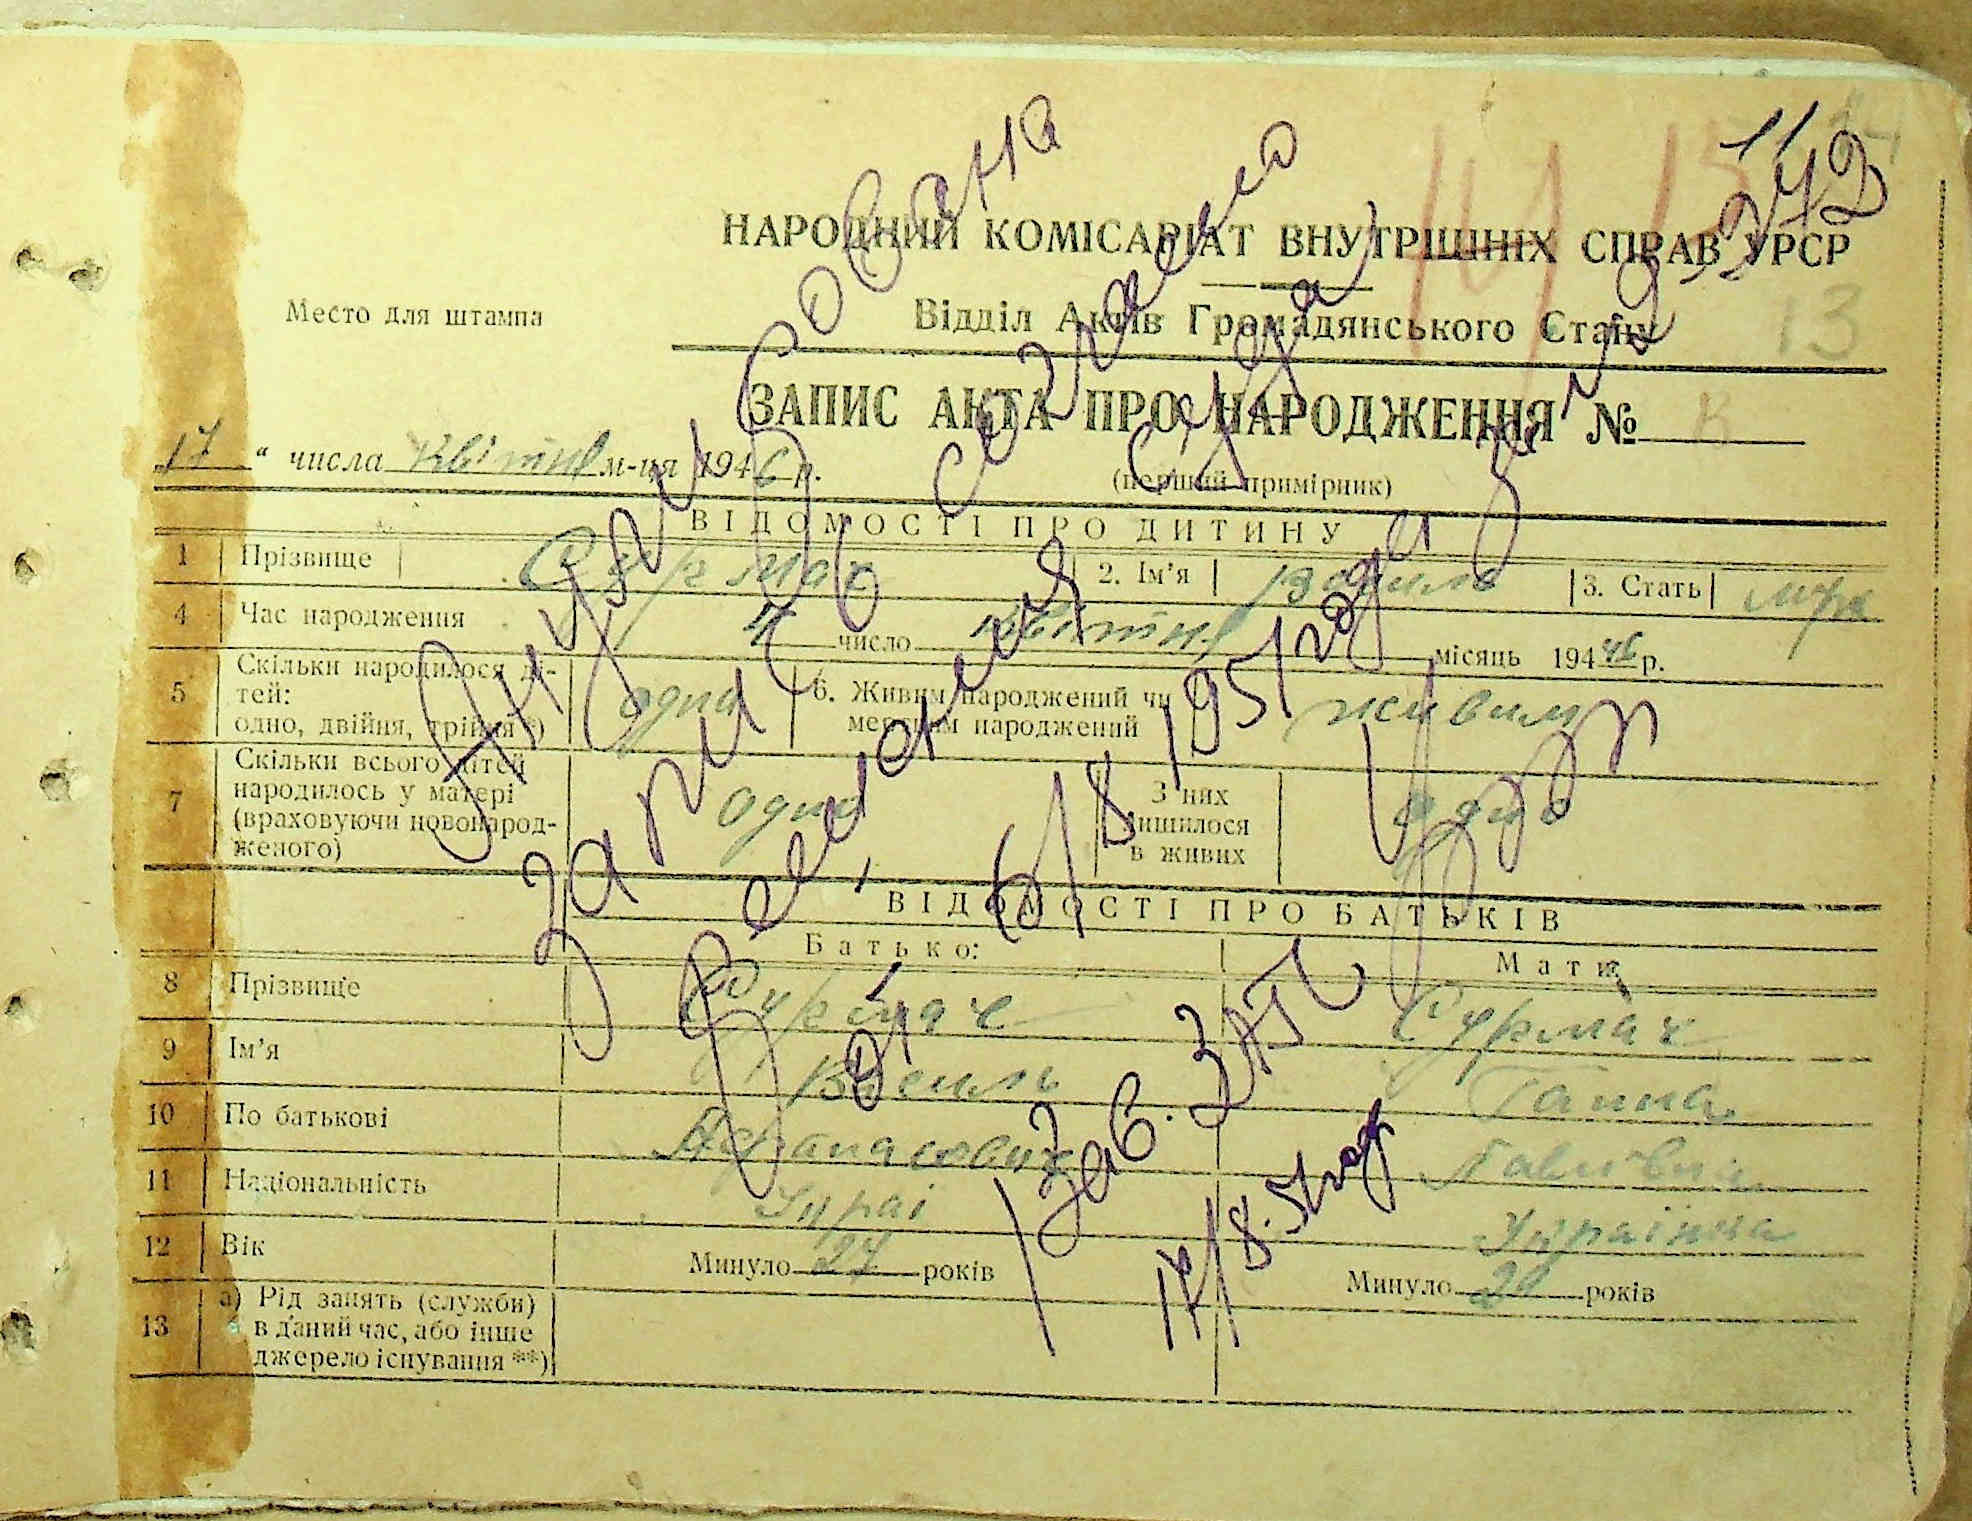 НАРОДНИЙ КОМІСАРІАТ ВНУТРІШНІХ СПРАВ УРСР
Место для штампа
Відділ Актів Громадянського Стану
13
ЗАПИС АКТА ПРО НАРОДЖЕННЯ №
"17" числа Квітня м-ця 1946 р.
(перший примірник)
ВІДОМОСТІ ПРО ДИТИНУ
1 Прізвище Сурмач 2. Ім'я Василь 3. Стать
4 Час народження число Квітня місяць 1946 р.
5 Скільки народилося ді-
тей:
одно, двійня, трійня *) одна 6. Живим народжений чи
мертвим народжений живим
7 Скільки всього дітей
народилось у матері
(враховуючи новонарод-
женого) одно З них
лишилося
в живих одно
ВІДОМОСТІ ПРО БАТЬКІВ
Батько: Мати:
8 Прізвище Сурмач Сурмач
9 Ім'я Василь Ганна
10 По батькові Афанасович Павлівна
11 Національність Украі Українка
12 Вік Минуло 24 років Минуло років
13 а) Рід занять (служби)
в даний час, або інше
джерело існування **)
Аннулирована
запись согласно
суда
от 6/8 1951 года за №
Зав. ЗАГС
8. 51 год